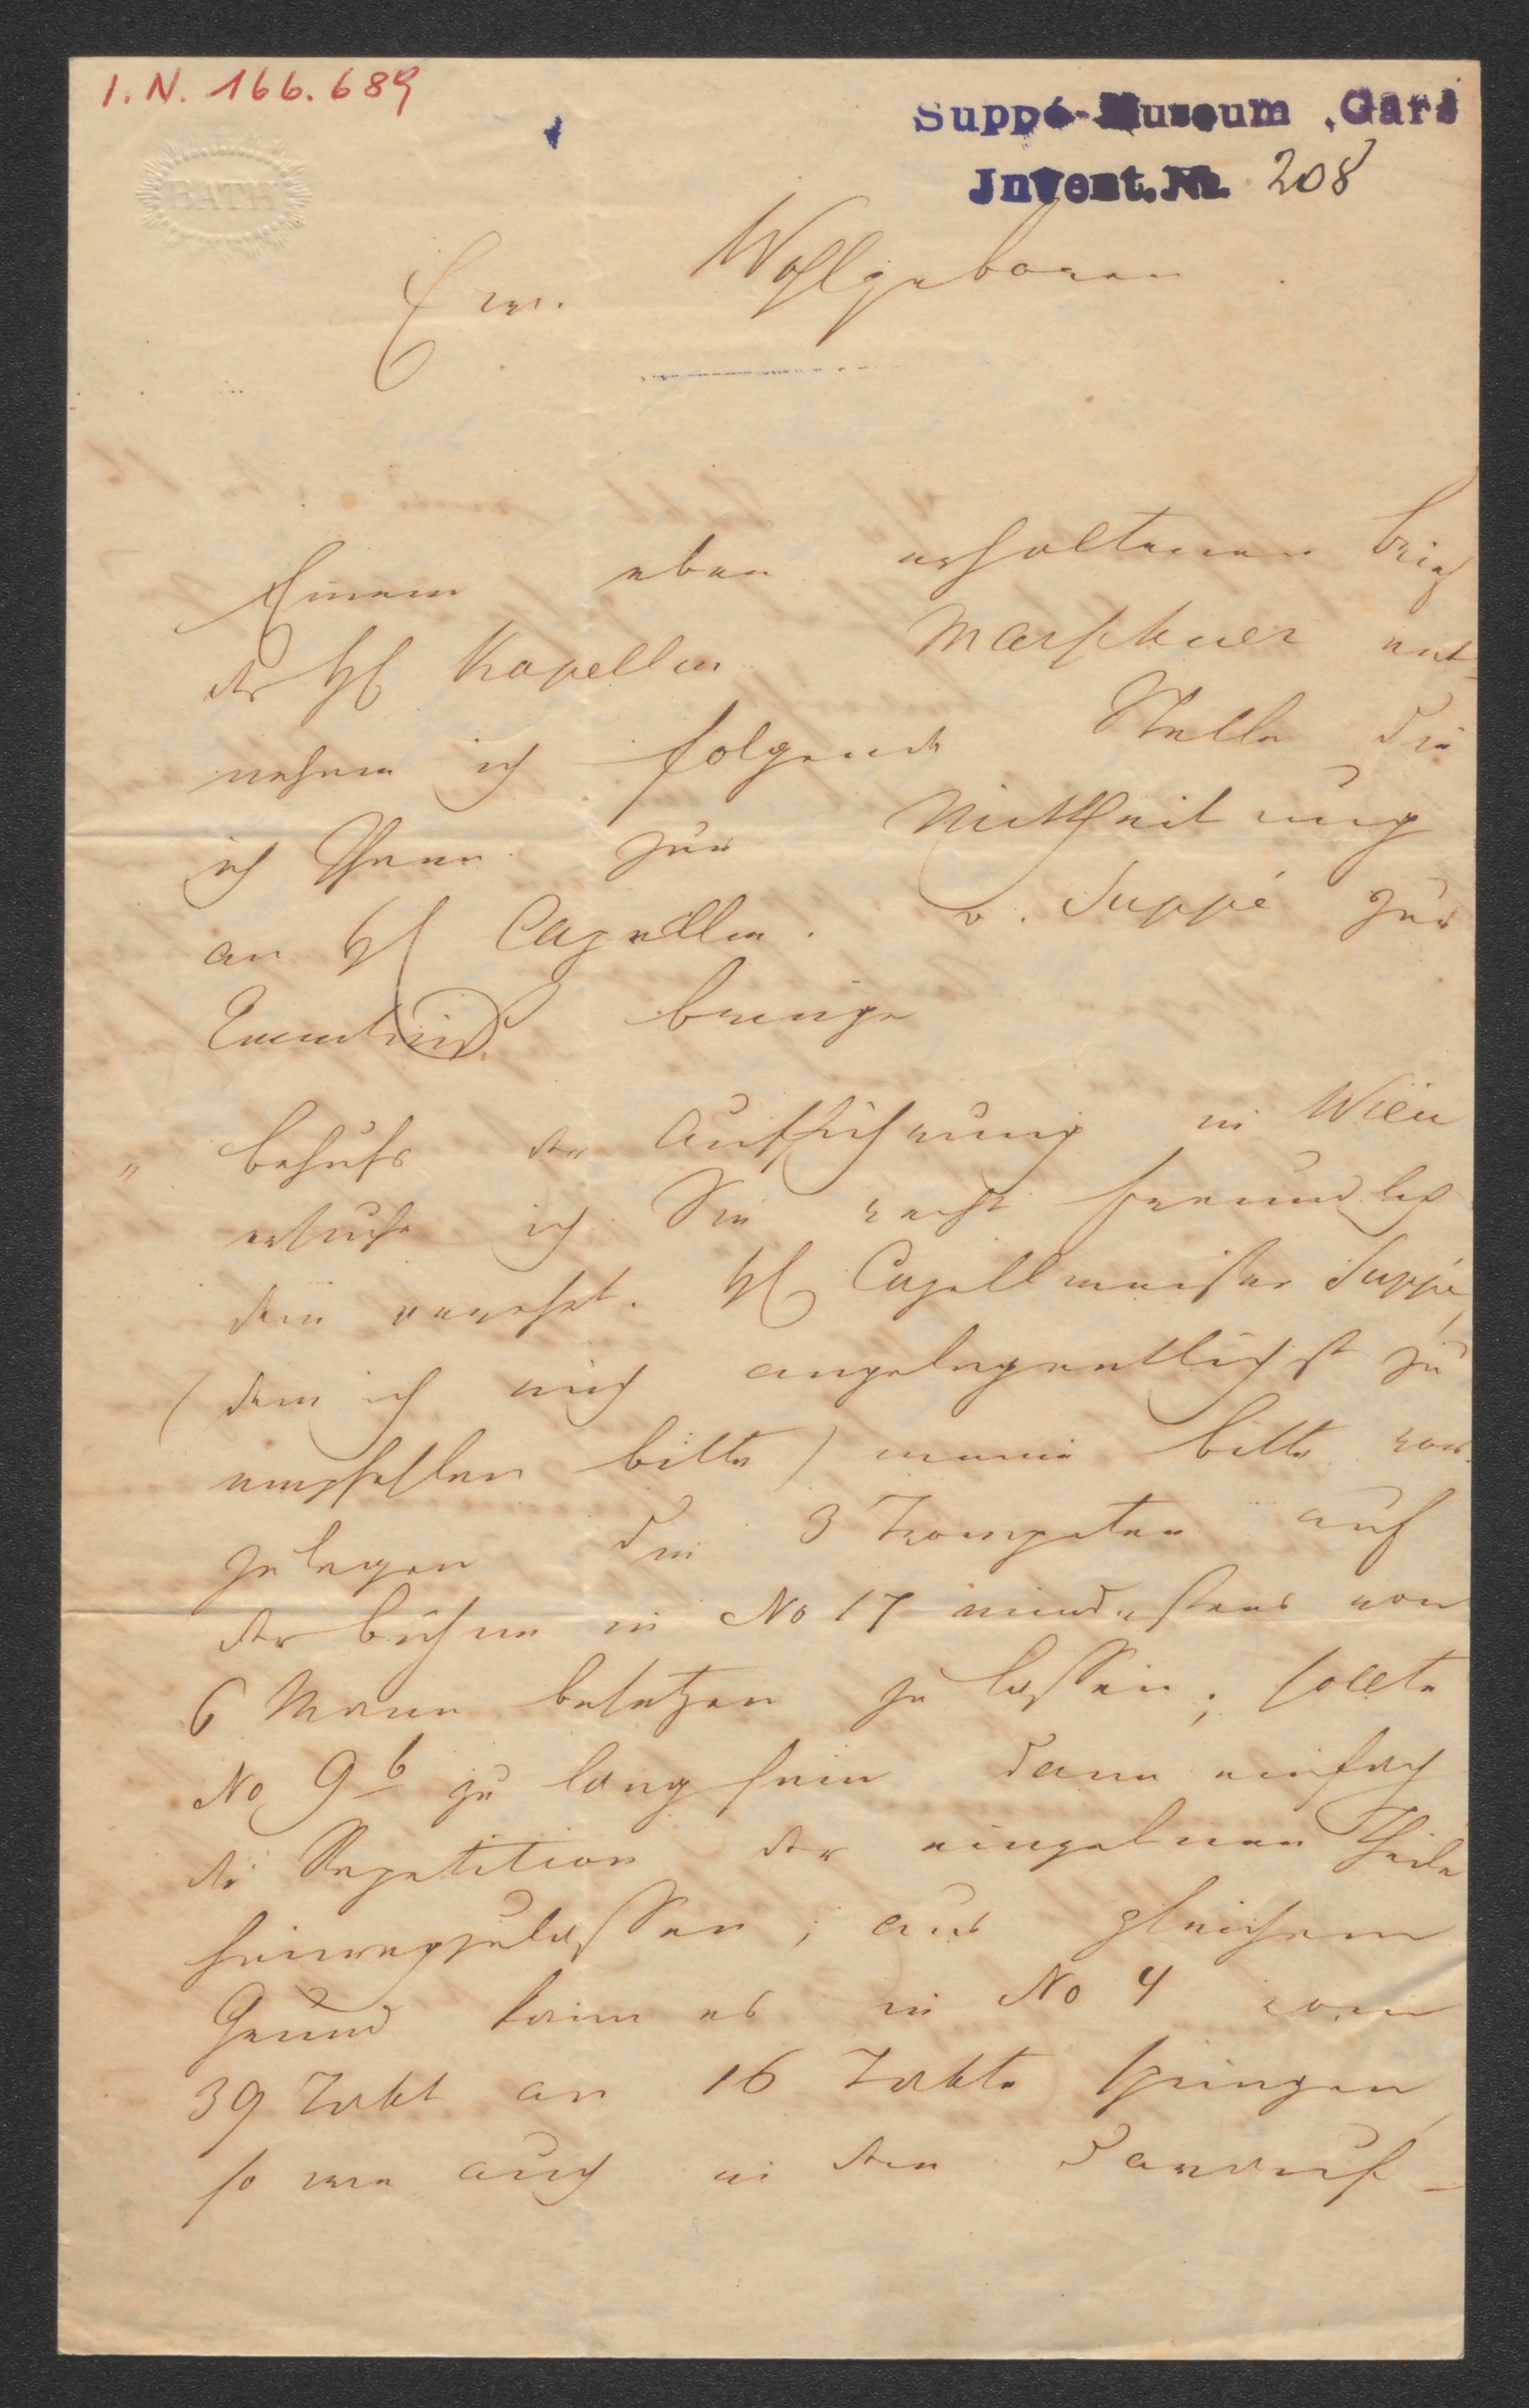 I.N. 166.689
Suppé-Museum, Gars
Invent.Nr. 208
BATH
Euer. Wohlgeboren
Einem eben erhaltenen Brief
des H Kapellm. Marschner ent-
nehme ich folgende Stelle die
ich Ihnen zur Mittheilung
an H Capellm. v. Suppé zur
Kenntniß bringe
" behufs der Aufführung in Wien
ersuche ich Sie recht freundlich
dem verehrt. H Capellmeister Suppé,
(dem ich mich angelegentlichst zu
empfehlen bitte) meine Bitte vor-
zulegen die 3 Trompeten auf
der Bühne in No 17 mindestens von
6 Mann besetzen zu lassen; sollte
No 9b zu lang sein dann einfach
die Repetition der einzelnen Theile
hinwegzulassen; aus gleichem
Grund kann es in No 4 vom
39 Takt an 16 Takte springen,
so wie auch in den darauf-